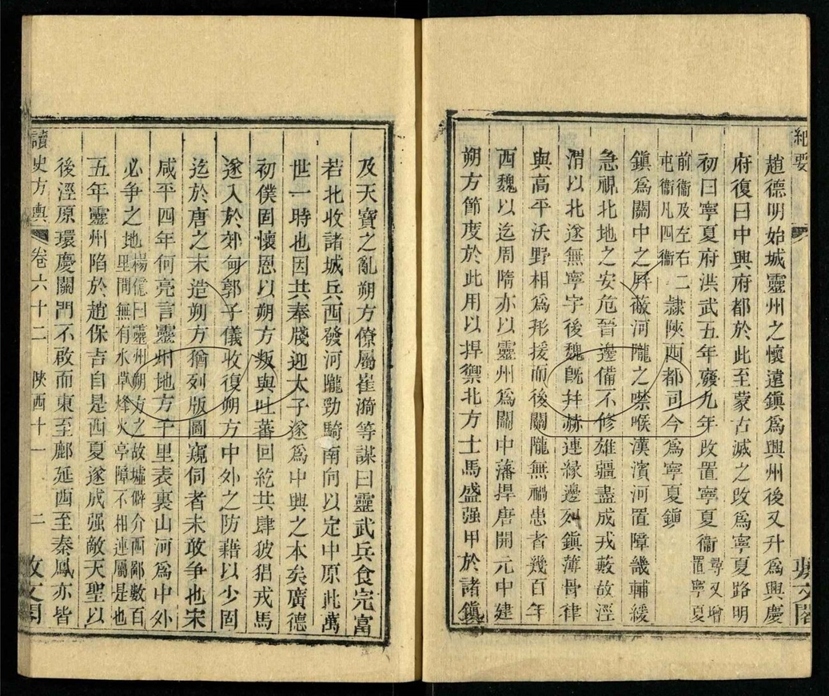 紀要
趙德明始城靈州之懷遠鎮爲興州後又升爲興慶
府復曰中興府都於此至蒙古滅之改爲寧夏路明
初曰寧夏府洪武五年廢九年改置寧夏衞尋又增置寧夏
前衞及左右二屯衞凡四衞隸陝西都司今爲寧夏鎮
鎮爲關中之屛蔽河隴之噤喉漢濱河置障畿輔緩
急視北地之安危晉邊備不修雄疆盡成戎藪故涇
渭以北遂無寧宇後魏旣幷赫連緣邊列鎮薄骨律
與高平沃野相爲形援而後關隴無禍患者幾百年
西魏以迄周隋亦以靈州爲關中藩捍唐開元中建
朔方節度於此用以捍禦北方士馬盛强甲於諸鎮
敷文閣
及天寶之亂朔方僚屬崔漪等謀曰靈武兵食完富
若北收諸城兵西發河隴勁騎南向以定中原此萬
世一時也因共奉牋迎太子遂爲中興之本矣廣德
初僕固懷恩以朔方叛與吐蕃回紇共肆彼猖戎馬
遂入於郊甸郭子儀收復朔方中外之防藉以少固
迄於唐之末造朔方猶列版圖窺伺者未敢爭也宋
咸平四年何亮言靈州地方千里表裏山河爲中外
必爭之地楊億曰靈州朔方之故墟僻介西鄙數百里間無有水草烽火亭障不相連屬是也
五年靈州陷於趙保吉自是西夏遂成强敵天聖以
後涇原環慶關門不啟而東至鄜延西至秦鳳亦皆
讀史方輿
卷六十二
陝西十一
二
敷文閣